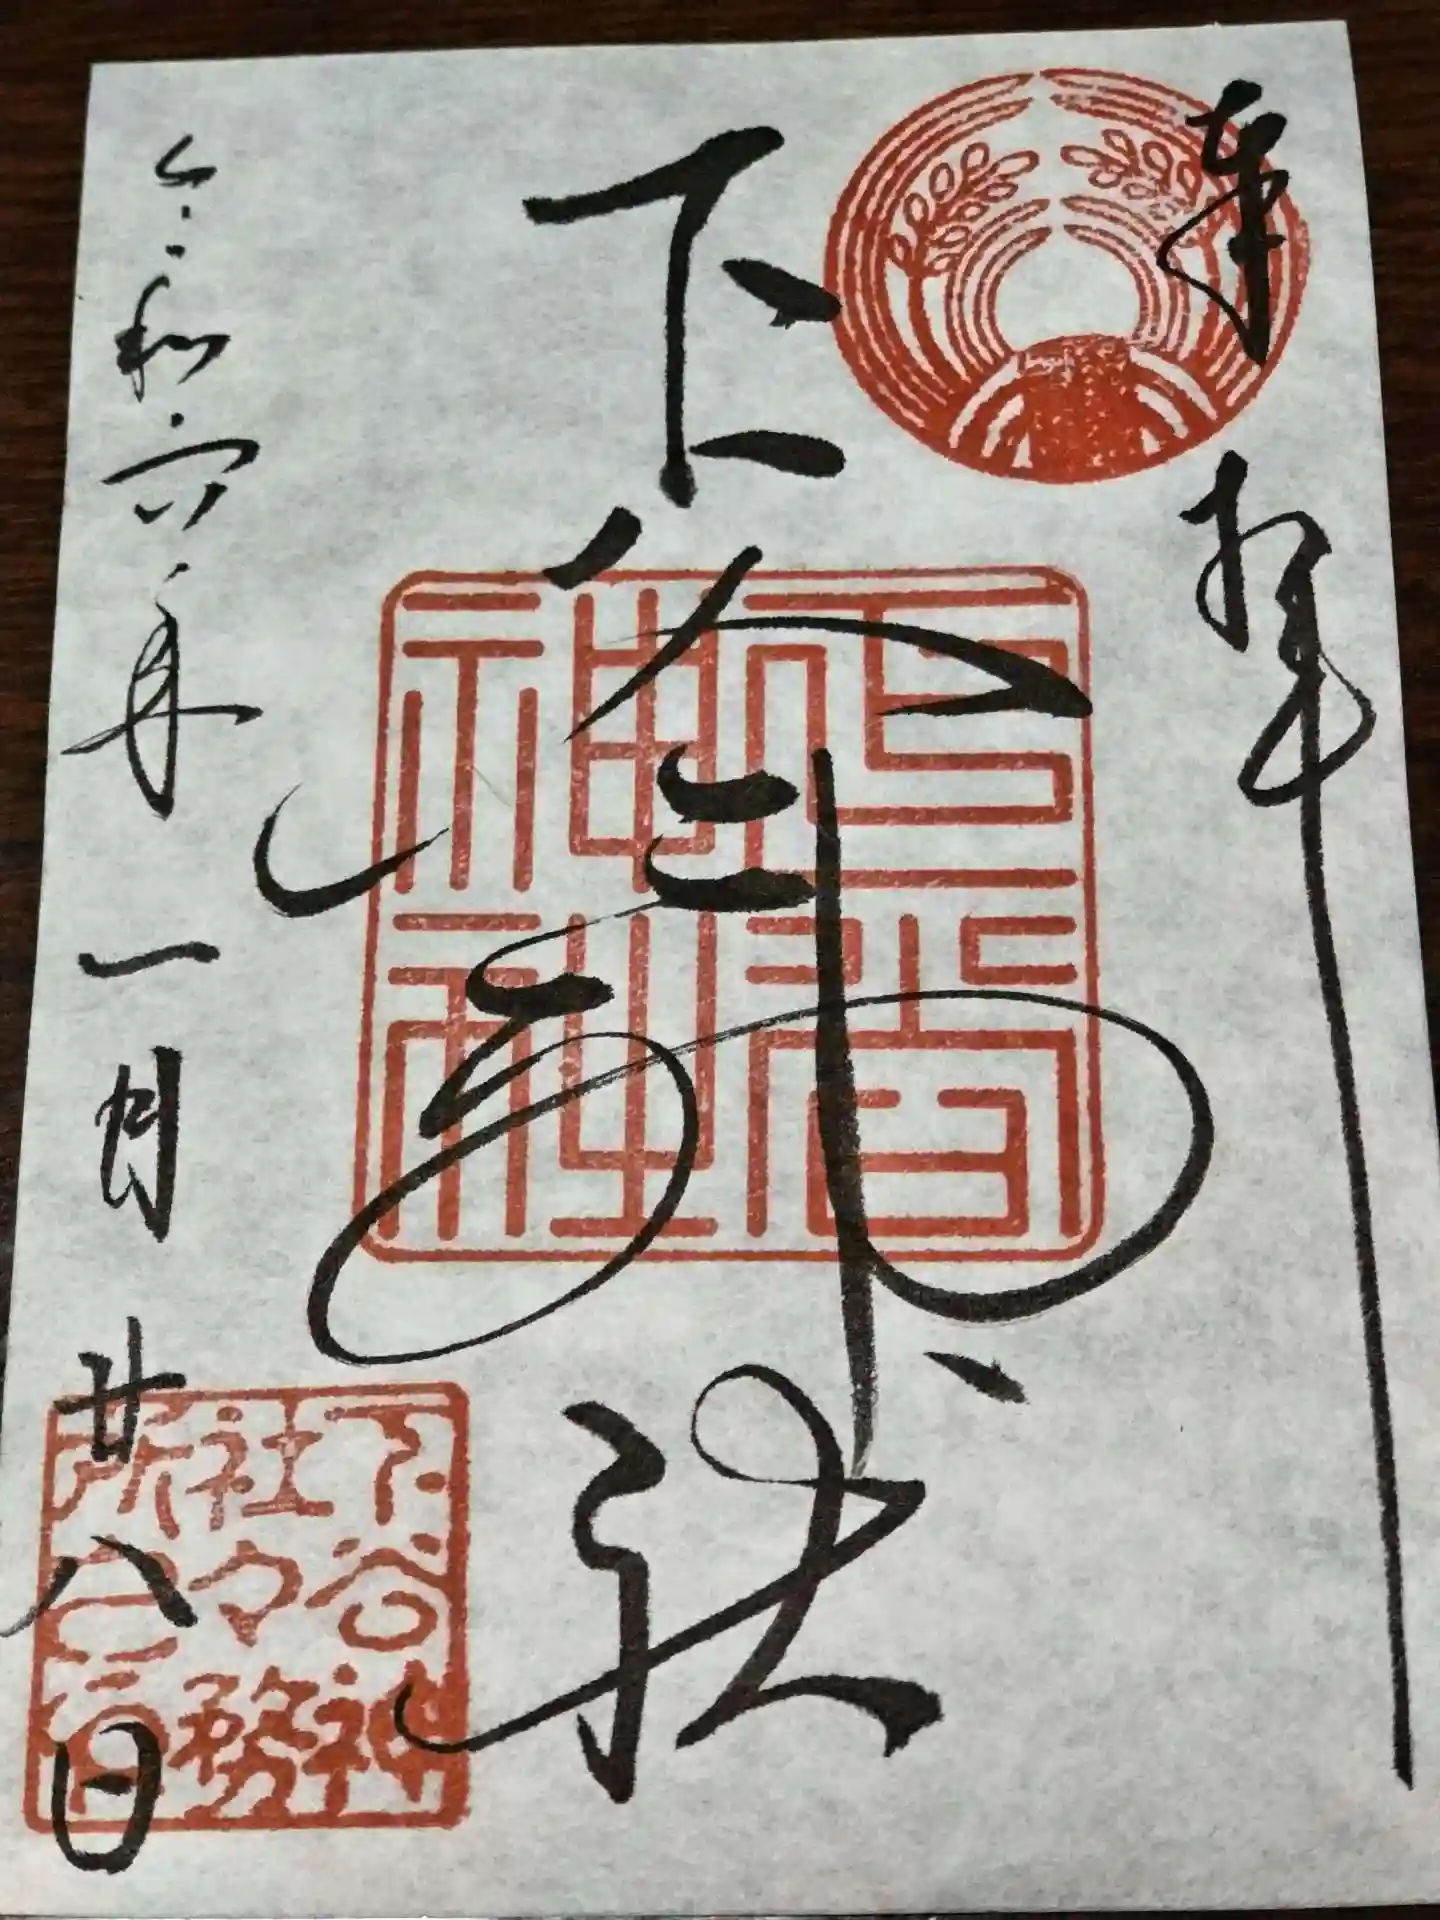 奉拝
下谷神社
下谷神社
下谷神
社々務
所之印
令和六年一月廿八日